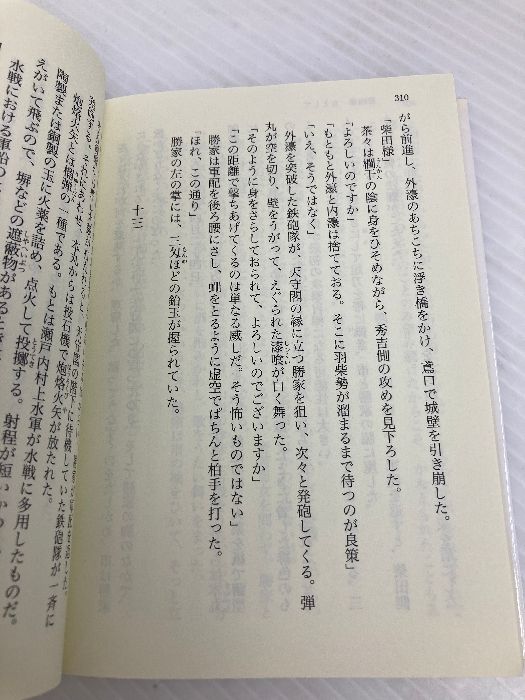 310
がら前進し、外濠のあちこちに浮き橋をかけ、鳶口で城壁を引き崩した。
「柴田様」
茶々は欄干の陰に身をひそめながら、秀吉側の攻めを見下ろした。
「よろしいのですか」
「もともと外濠と内濠は捨てておる。そこに羽柴勢が溜まるまで待つのが良策」
「いえ、そうではなく」
外濠を突破した鉄砲隊が、天守閣の縁に立つ勝家を狙い、次々と発砲してくる。弾
丸が空を切り、壁をうがって、えぐられた漆喰が白く舞った。
「そのように身をさらしておられて、よろしいのでございますか」
「この距離で撃ちあげてくるのは単なる威しだ。そう怖いものではない」
勝家は軍配を後ろ腰にさし、蠅をとるように虚空でぱちんと柏手を打った。
「ほれ、この通り」
勝家の左の掌には、三匁ほどの鉛玉が握られていた。
十三
待機していた鉄砲隊が一斉に
あわせ、本丸からは投石機で焙烙火矢が放たれた。
焙烙火矢とは榴弾の一種である。もとは瀬戸内村上水軍が水戦に多用したものだ。
陶製または銅製の玉に火薬を詰め、点火して投擲する。射程が短いか
えがいて飛ぶので、塀などの遮蔽物があるときに
水戦における軍船の